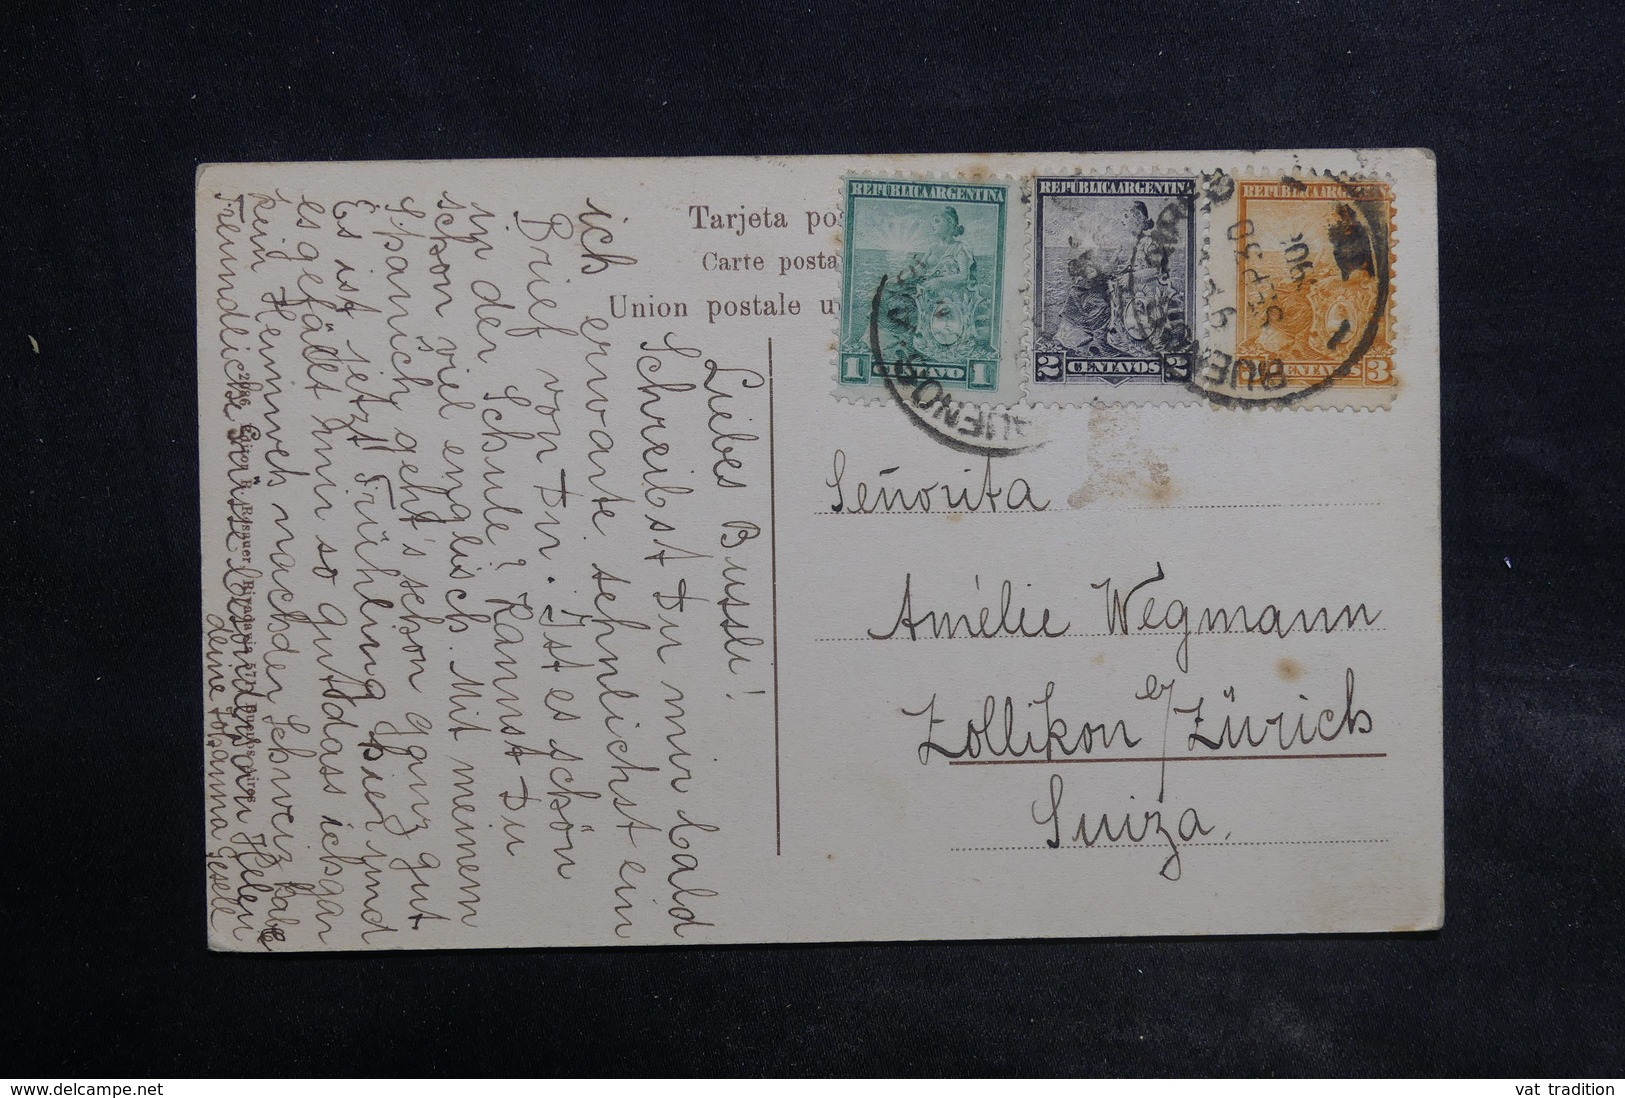 Tarjeta pos
Carte posta
Union postale u
REPÚBLICA ARGENTINA
1 CENTAVO 1
REPÚBLICA ARGENTINA
2 CENTAVOS 2
REPÚBLICA ARGENTINA
CENTAVOS 3
BUENOS AIRES
BUENOS AIRES
SEP 30
06
Señorita
Amélie Wegmann
Zollikon b/ Zürich
Suiza.
Liebes Bussli!
Schreibst Du mir bald
ich erwarte sehnlichst ein
Brief von Dir. Ist es schön
in der Schule? Kannst Du
schon viel englisch. Mit meinem
Spanich geht's schon ganz gut
Es ist jetzt Frühling hier und
es gefällt mir so gut dass ich gar
kein Heimweh nach der Schweiz habe
Freundliche Grüsse besonders an Helen
deine Johanna Gesell
Edicion R. Rosauer, Rivadavia 571, Buenos Aires
delcampe.net
vat tradition